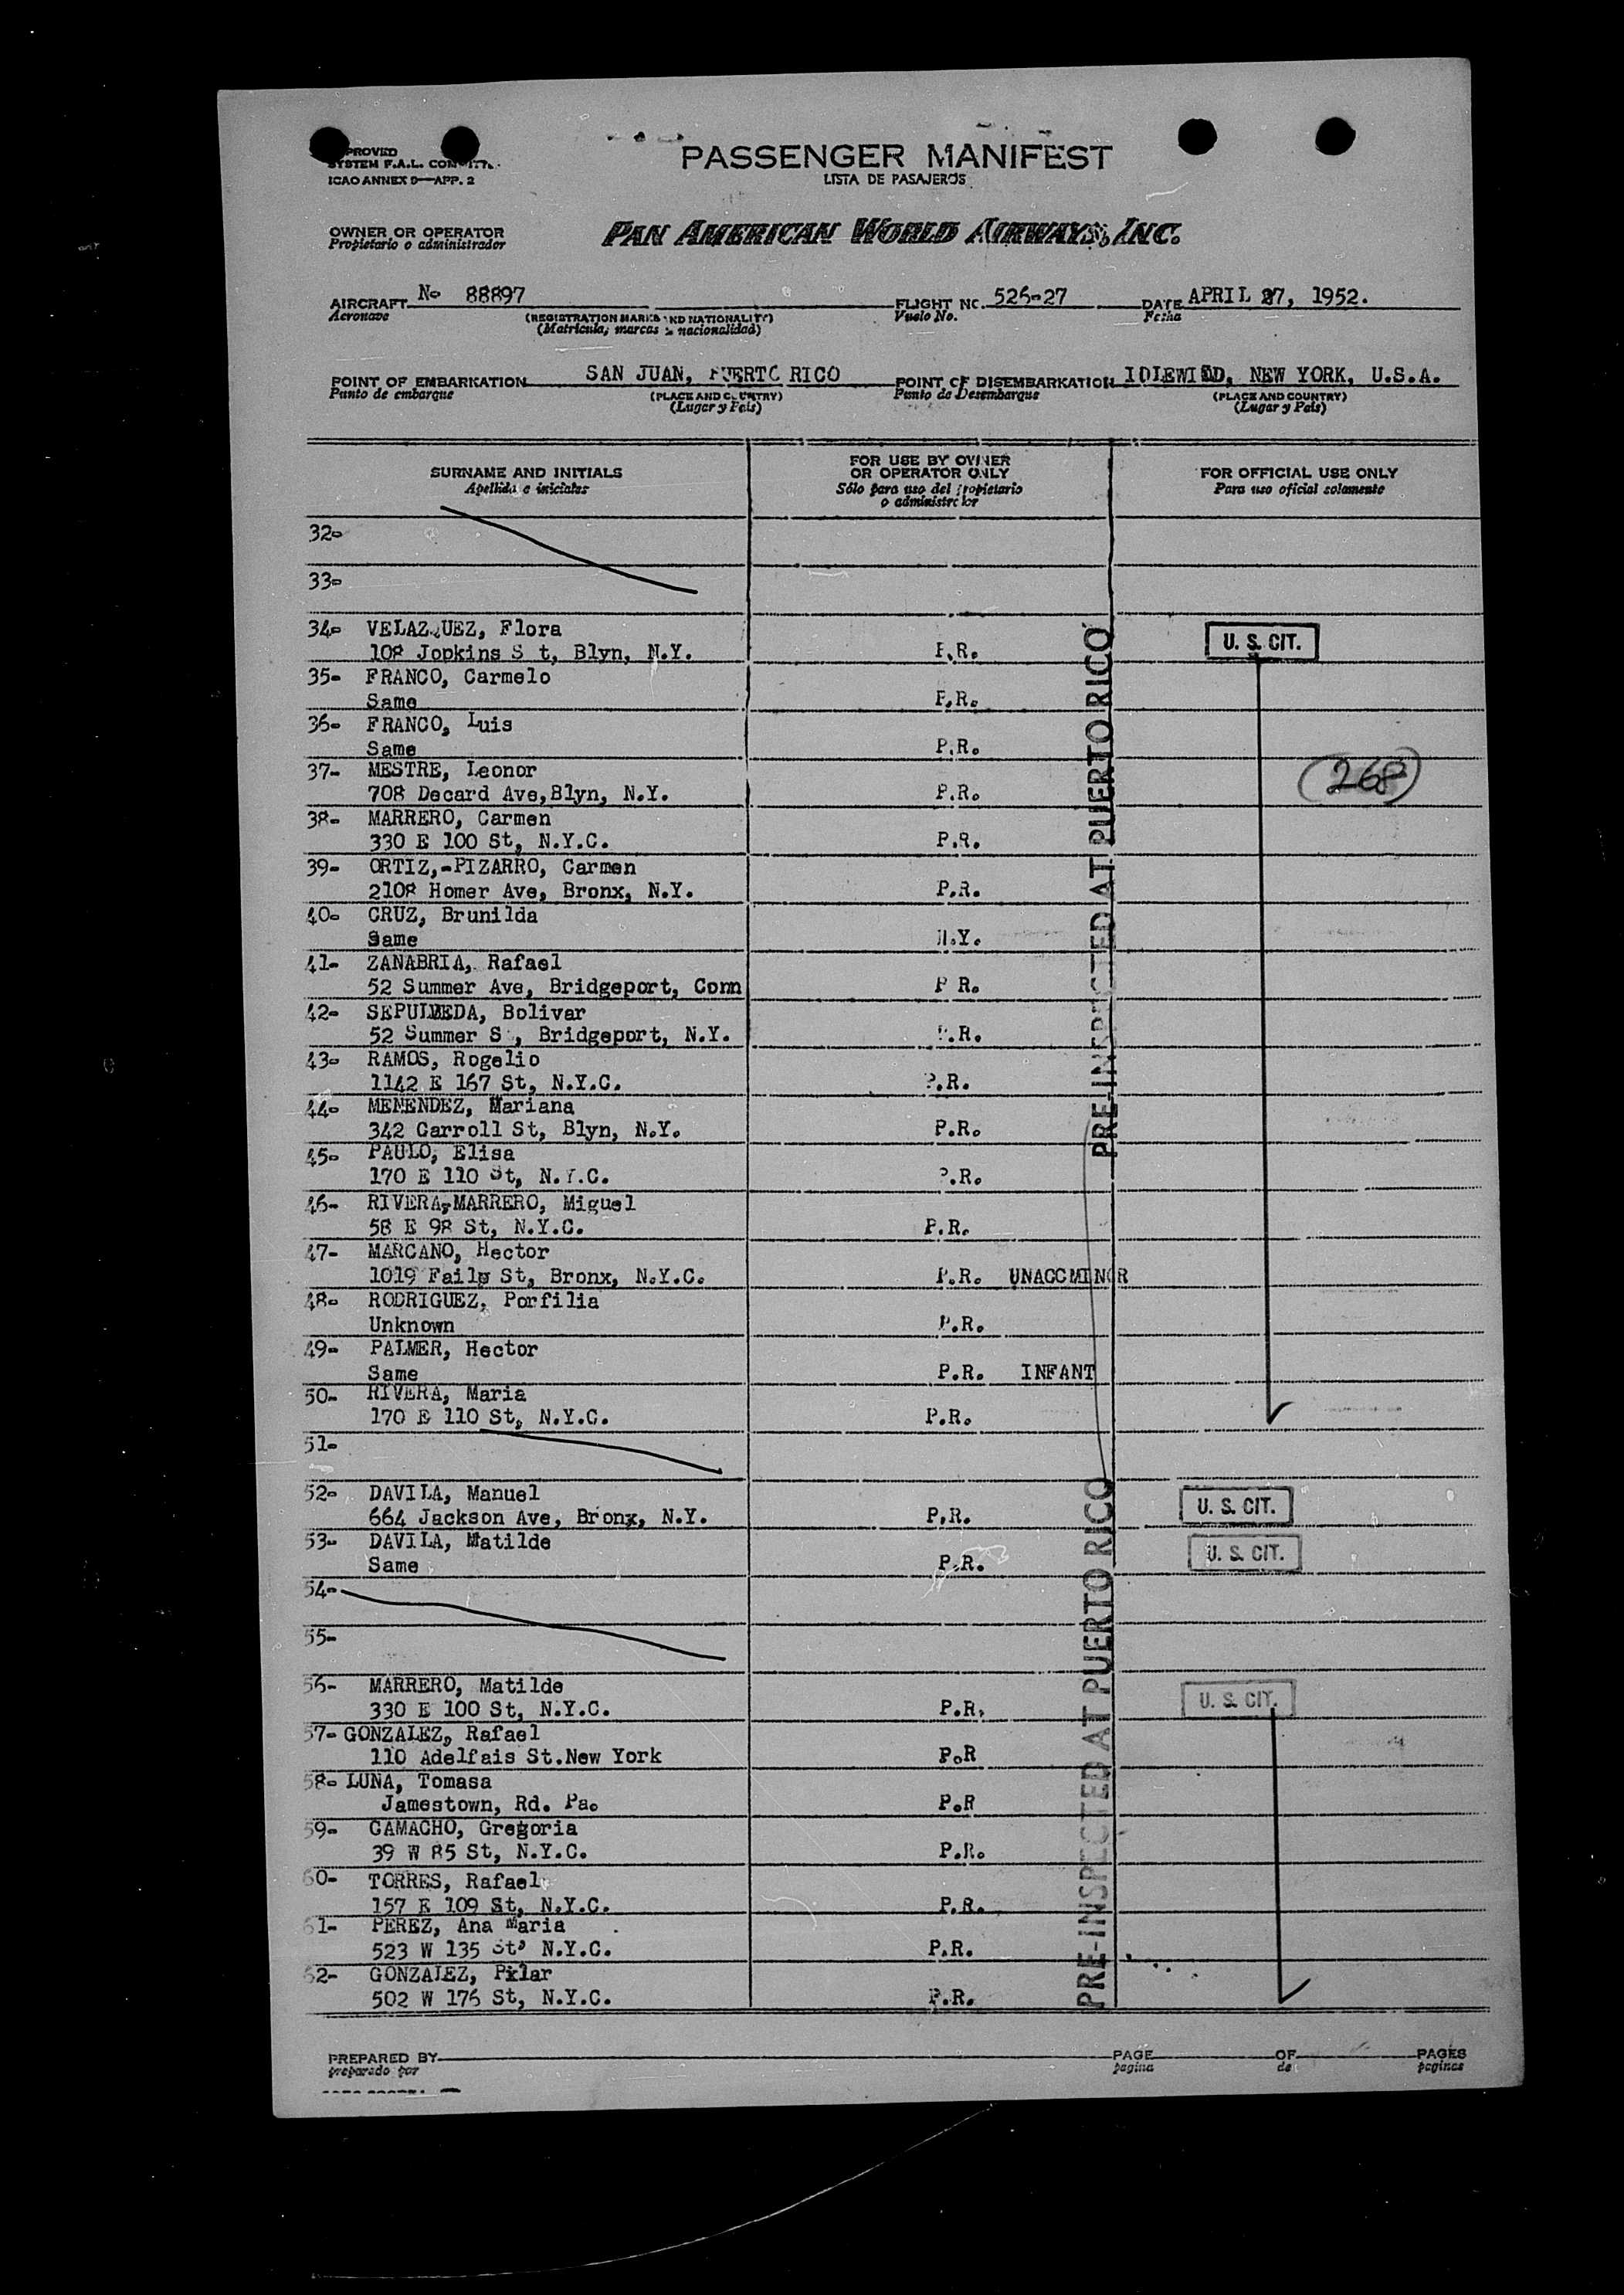 PASSENGER MANIFEST
LISTA DE PASAJEROS
SYSTEM F.A.L.
ICAO ANNEX 9—APP. 2
OWNER OR OPERATOR
Propietario o administrador
PAN AMERICAN WORLD AIRWAYS, INC.
AIRCRAFT No 88897 FLIGHT NO. 526-27 DATE APRIL 27, 1952.
Aeronave (REGISTRATION MARKS AND NATIONALITY) Vuelo No. Fecha
(Matricula, marcas y nacionalidad)
POINT OF EMBARKATION SAN JUAN, PUERTO RICO POINT OF DISEMBARKATION IDLEWILD, NEW YORK, U.S.A.
Punto de embarque (PLACE AND COUNTRY) Punto de Desembarque (PLACE AND COUNTRY)
(Lugar y Pais) (Lugar y Pais)
SURNAME AND INITIALS FOR USE BY OWNER OR OPERATOR ONLY FOR OFFICIAL USE ONLY
Apellido e iniciales Sólo para uso del propietario o administrador Para uso oficial solamente
32-
33-
34- VELAZQUEZ, Flora
108 Jopkins S t, Blyn, N.Y. P.R. U. S. CIT.
35- FRANCO, Carmelo
Same P.R.
36- FRANCO, Luis
Same P.R.
37- MESTRE, Leonor (268)
708 Decard Ave,Blyn, N.Y. P.R.
38- MARRERO, Carmen
330 E 100 St, N.Y.C. P.R.
39- ORTIZ,-PIZARRO, Carmen
2108 Homer Ave, Bronx, N.Y. P.R.
40- CRUZ, Brunilda
Same N.Y.
41- ZANABRIA, Rafael
52 Summer Ave, Bridgeport, Conn P R.
42- SEPULVEDA, Bolivar
52 Summer S , Bridgeport, N.Y. P.R.
43- RAMOS, Rogelio
1142 E 167 St, N.Y.C. P.R.
44- MENENDEZ, Mariana
342 Carroll St, Blyn, N.Y. P.R.
45- PAULO, Elisa
170 E 110 St, N.Y.C. P.R.
46- RIVERA-MARRERO, Miguel
58 E 98 St, N.Y.C. P.R.
47- MARCANO, Hector
1019 Faile St, Bronx, N.Y.C. P.R. UNACCMINOR
48- RODRIGUEZ, Porfilia
Unknown P.R.
49- PALMER, Hector
Same P.R. INFANT
50- RIVERA, Maria
170 E 110 St, N.Y.C. P.R.
PRE-INSPECTED AT PUERTO RICO
51-
52- DAVILA, Manuel
664 Jackson Ave, Bronx, N.Y. P.R. U. S. CIT.
53- DAVILA, Matilde
Same P.R. U. S. CIT.
54-
55-
56- MARRERO, Matilde
330 E 100 St, N.Y.C. P.R. U. S. CIT.
57- GONZALEZ, Rafael
110 Adelfais St.New York P.R
58- LUNA, Tomasa
Jamestown, Rd. Pa. P.R
59- CAMACHO, Gregoria
39 W 85 St, N.Y.C. P.R.
60- TORRES, Rafael
157 E 109 St, N.Y.C. P.R.
61- PEREZ, Ana Maria
523 W 135 St, N.Y.C. P.R.
62- GONZALEZ, Pilar
502 W 176 St, N.Y.C. P.R.
PRE-INSPECTED AT PUERTO RICO
PREPARED BY PAGE OF PAGES
preparado por pagina de paginas